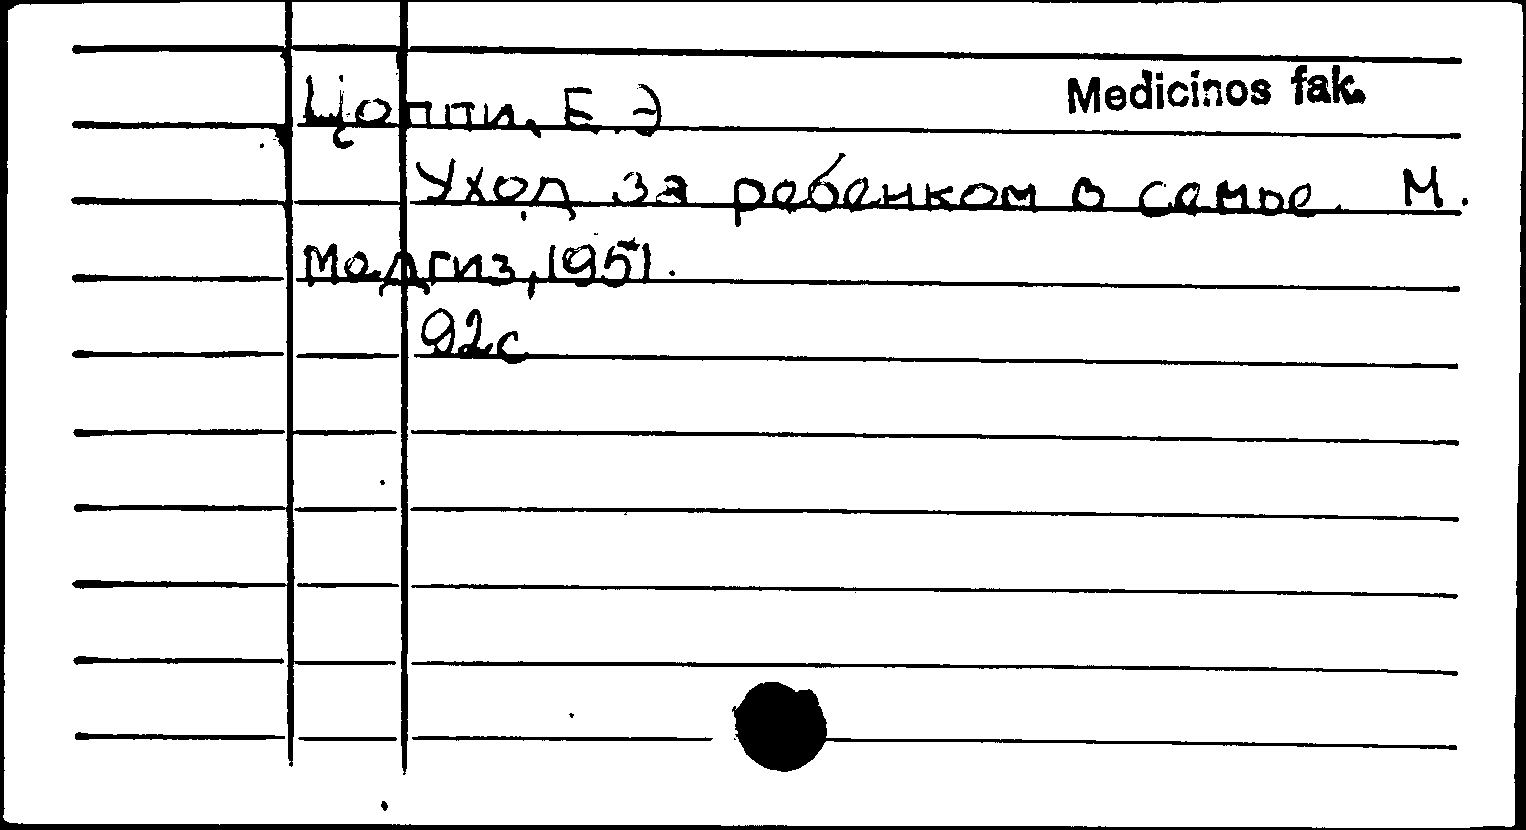 Medicinos fak.
Цоппи, Е.Э
Уход за ребенком в семье. М.
Медгиз, 1951.
92с